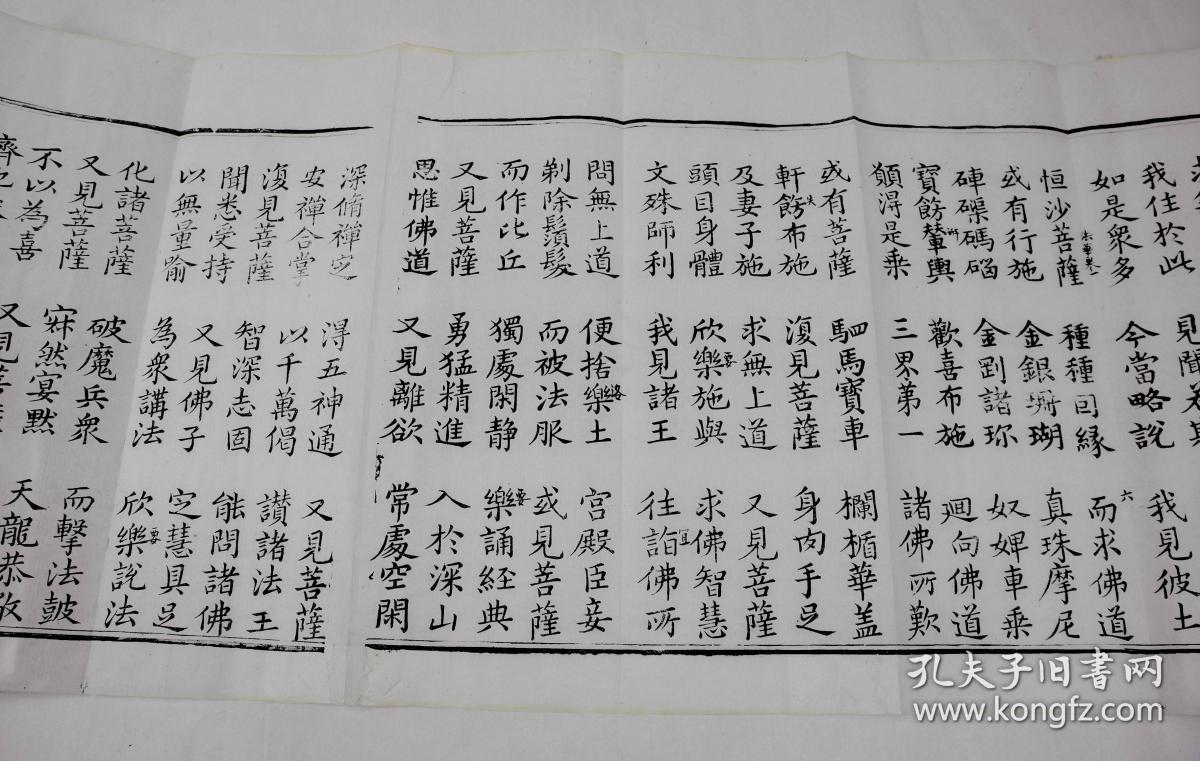 我住於此 見聞若
如是衆多 今當略說 我見彼土
恒沙菩薩 種種囙縁 而求佛道
法華卷一 六
或有行施 金銀珊瑚 真珠摩尼
硨磲碼碯 金剛諸珎 奴婢車乘
寶餝輦輿 歡喜布施 迴向佛道
願得是乘 三界第一 諸佛所歎
或有菩薩 駟馬寶車 欄楯華盖
軒餝布施 復見菩薩 身肉手足
及妻子施 求無上道 又見菩薩
頭目身體 欣樂施與 求佛智慧
文殊師利 我見諸王 往詣佛所
問無上道 便捨樂土 宮殿臣妾
剃除鬚髮 而被法服 或見菩薩
而作比丘 獨處閑静 樂誦經典
又見菩薩 勇猛精進 入於深山
思惟佛道 又見離欲 常處空閑
深脩禪定 得五神通 又見菩薩
安禪合掌 以千萬偈 讃諸法王
復見菩薩 智深志固 能問諸佛
聞悉受持 又見佛子 定慧具足
以無量喻 為衆講法 欣樂說法
化諸菩薩 破魔兵衆 而擊法鼓
又見菩薩 寂然宴默 天龍恭敬
不以為喜 又見菩
孔夫子旧书网
www.kongfz.com